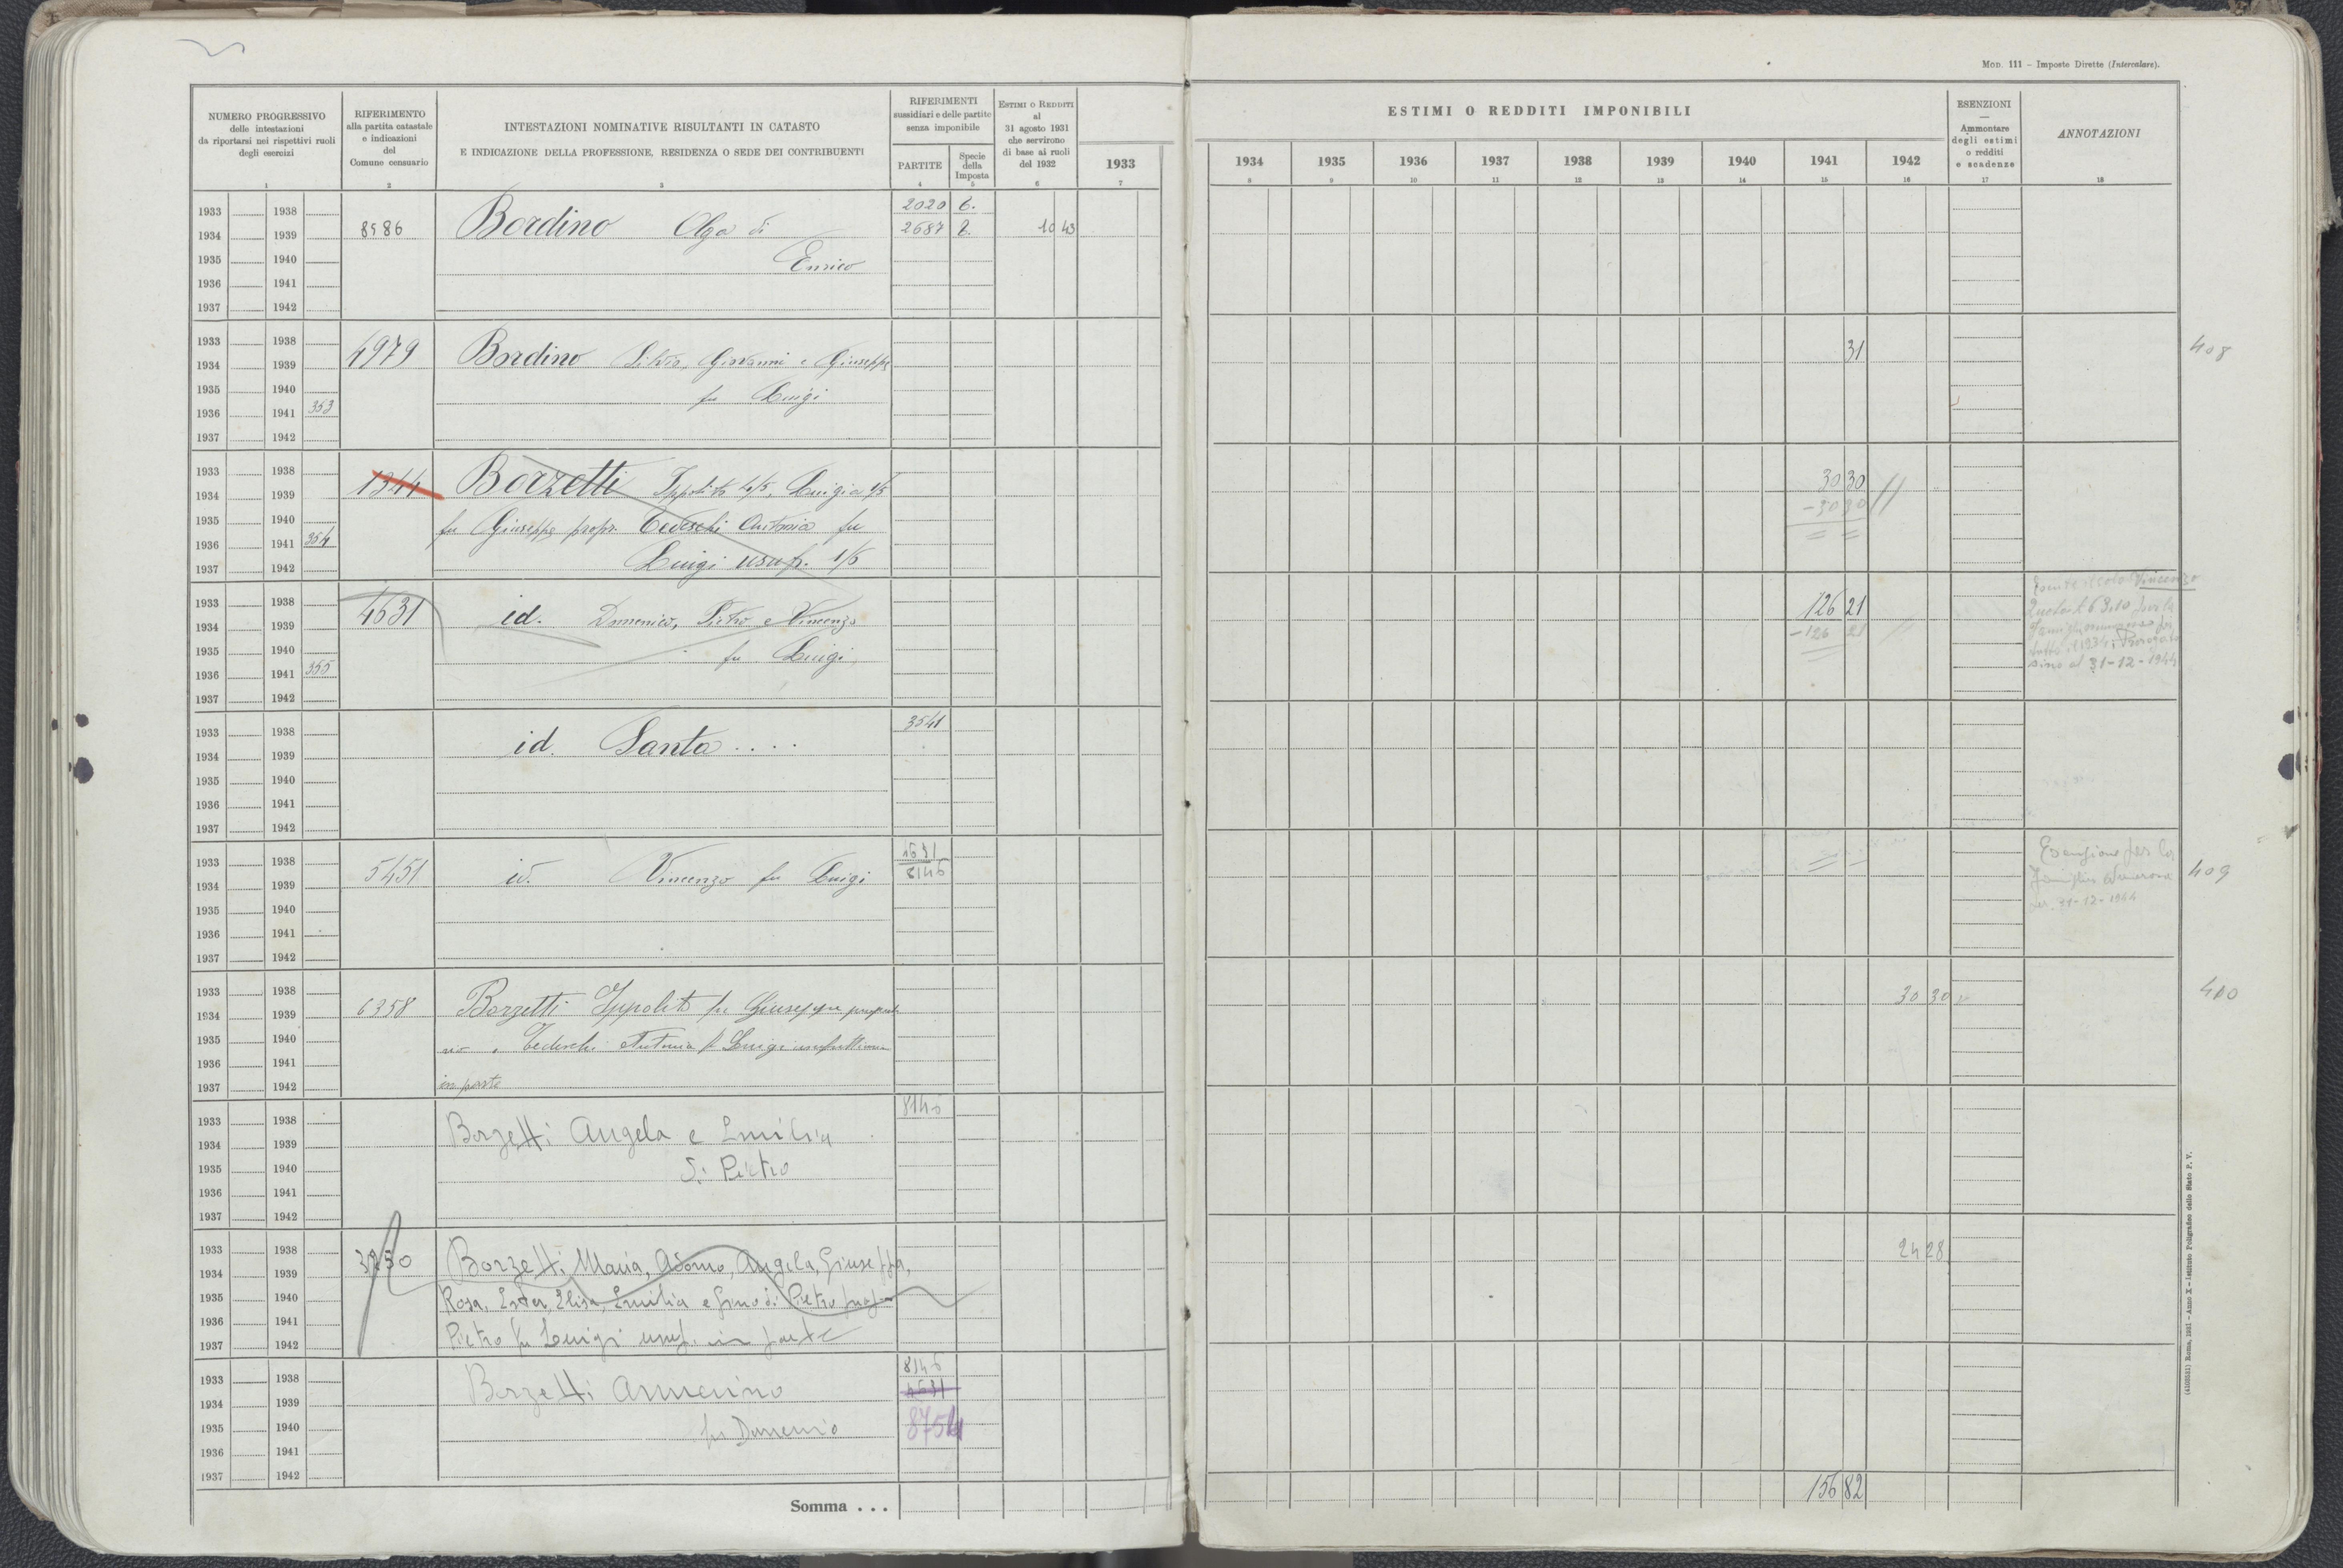 MOD. 111 – Imposte Dirette (Intercalare).
NUMERO PROGRESSIVO
delle intestazioni
da riportarsi nei rispettivi ruoli
degli esercizi
1
RIFERIMENTO
alla partita catastale
e indicazioni
del
Comune censuario
2
INTESTAZIONI NOMINATIVE RISULTANTI IN CATASTO
E INDICAZIONE DELLA PROFESSIONE, RESIDENZA O SEDE DEI CONTRIBUENTI
3
RIFERIMENTI
sussidiari e delle partite
senza imponibile
PARTITE
4
Specie
della
Imposta
5
ESTIMI O REDDITI
al
31 agosto 1931
che servirono
di base ai ruoli
del 1932
6
1933
7
ESTIMI O REDDITI IMPONIBILI
1934 1935 1936 1937 1938 1939 1940 1941 1942
8 9 10 11 12 13 14 15 16
ESENZIONI
—
Ammontare
degli estimi
o redditi
e scadenze
17
ANNOTAZIONI
18
1933 1938 2020 6.
1934 1939 8586 Bordino Olga di 2687 2. 10 43
1935 1940 Enrico
1936 1941
1937 1942
1933 1938
1934 1939 4979 Bordino Silvio, Giovanni e Giuseppe 31 408
1935 1940 fu Luigi
1936 1941 353
1937 1942
1933 1938
1934 1939 1344 Borzetti Ippolito 4/5, Luigia 1/5 30 30
1935 1940 fu Giuseppe propr. Tedeschi Antonia fu – 30 30
1936 1941 354 Luigi usuf. 1/5 = =
1937 1942
1933 1938
1934 1939 4631 id. Domenico, Pietro e Vincenzo 126 21
1935 1940 fu Luigi – 126 21
1936 1941 355
1937 1942
Vincenzo
sino al 31-12-1944
1933 1938 3541
1934 1939 id. Santa ....
1935 1940
1936 1941
1937 1942
1933 1938 8146
1934 1939 5451 id. Vincenzo fu Luigi = = 409
1935 1940
1936 1941
1937 1942
Esenzione per la
famiglia numerosa
31-12-1944
1933 1938
1934 1939 6358 Borzetti Ippolito fu Giuseppe 30 30 410
1935 1940 Tedeschi Antonia f. Luigi
1936 1941
1937 1942 in parte
1933 1938 8146
1934 1939 Borzetti Angela e Emilia
1935 1940 di Pietro
1936 1941
1937 1942
1933 1938
1934 1939 Borzetti Maria, Adorno, Angela, Giuseppa, 24 28
1935 1940 Rosa, Ester, Elisa, Emilia e Gino di Pietro
1936 1941
1937 1942 Pietro fu Luigi usuf. in parte
1933 1938 8146
1934 1939 Borzetti Armenino 4631
1935 1940 fu Domenico 8754
1936 1941
1937 1942
Somma ... 156 82
(4103541) Roma, 1931 – Anno X – Istituto Poligrafico dello Stato P. V.